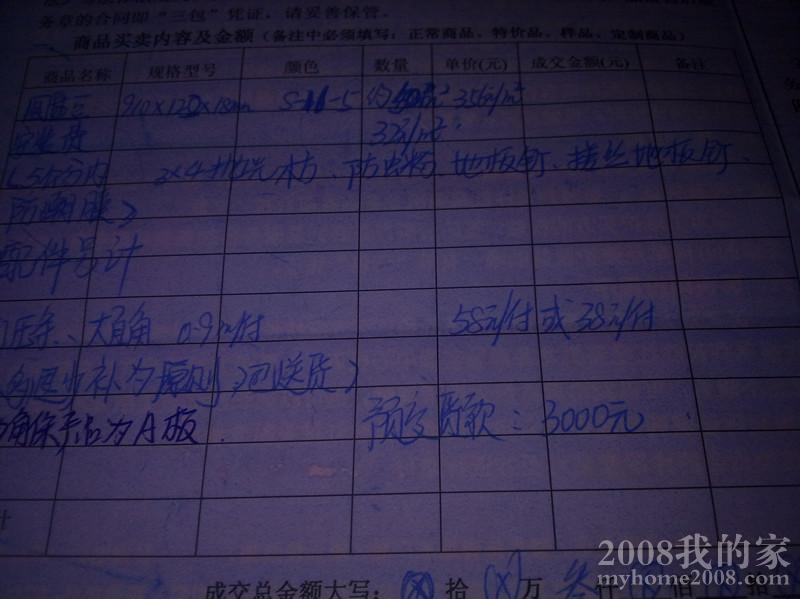 务章的合同即“三包”凭证，请妥善保管。
商品买卖内容及金额（备注中必须填写：正常商品、特价品、样品、定制商品）
商品名称 规格型号 颜色 数量 单价(元) 成交金额(元) 备注
910×120×18mm 356元/m²
安装费 32元/m²
木方、防虫粉、地板钉、搓丝地板钉、
防潮膜）
配件另计
压条、大直角 0.9m/付 58元/付 或 38元/付
多退少补为原则（已送货）
确保产品为A板. 预交货款：3000元
计
成交总金额大写：(×) 拾 (×) 万 叁 仟 佰 拾
2008我的家
myhome2008.com